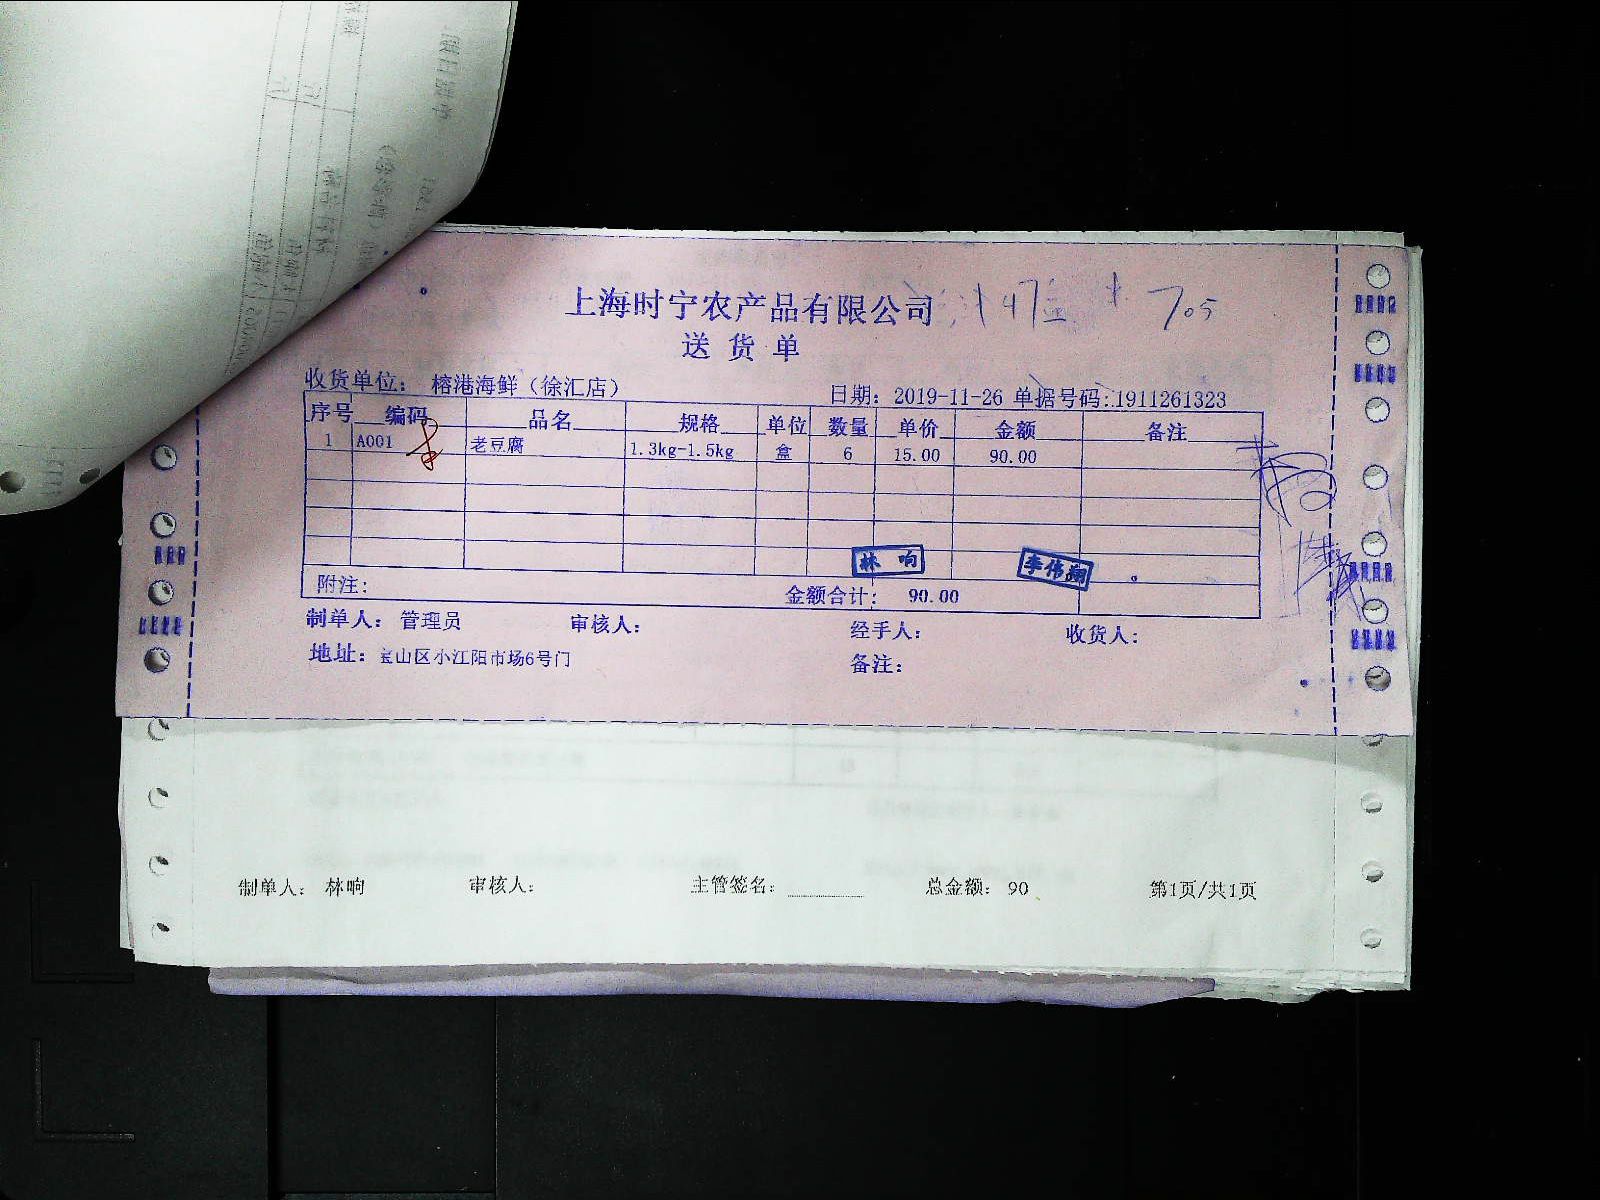 上海时宁农产品有限公司
47盒 705
送货单
收货单位： 榕港海鲜（徐汇店） 日期：2019-11-26 单据号码：1911261323
序号 编码 品名 规格 单位 数量 单价 金额 备注
1 A001 老豆腐 1.3kg-1.5kg 盒 6 15.00 90.00
林 响 李伟翔
附注： 金额合计： 90.00
制单人： 管理员 审核人： 经手人： 收货人：
地址：宝山区小江阳市场6号门 备注：
制单人： 林响 审核人： 主管签名： 总金额： 90 第1页/共1页